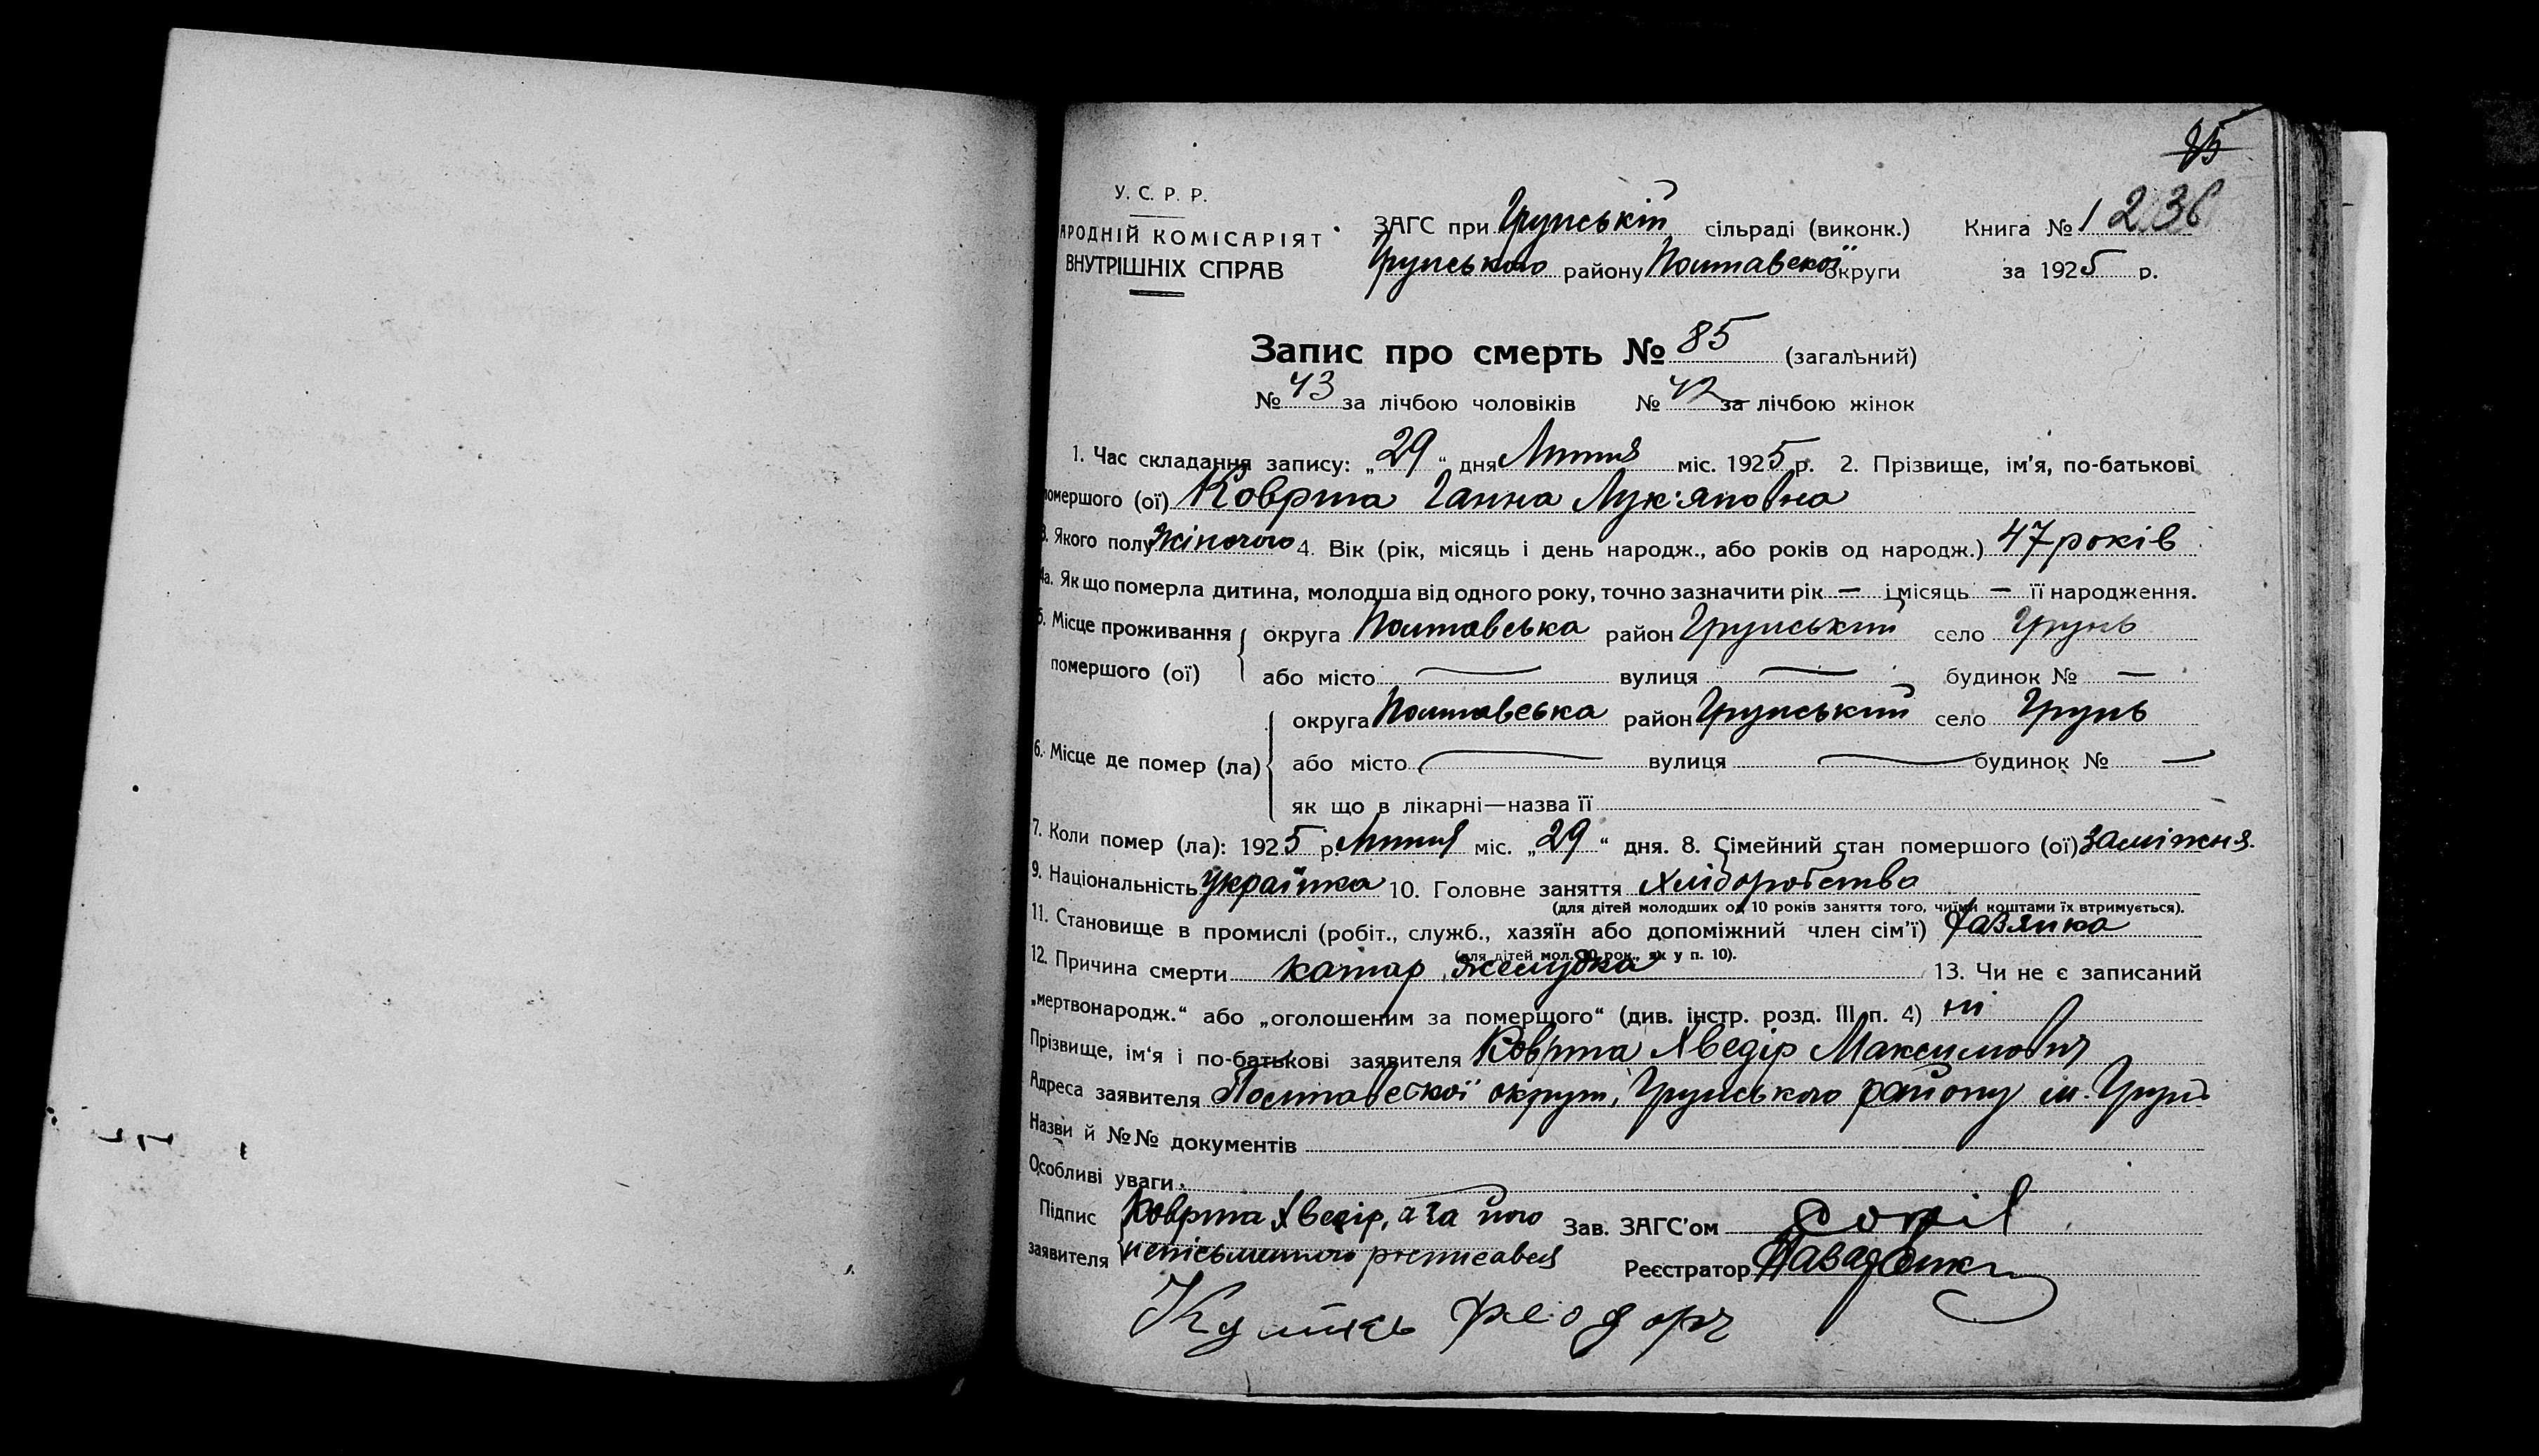 85
У. С. Р. Р.
АРОДНІЙ КОМІСАРІЯТ
ВНУТРІШНІХ СПРАВ
ЗАГС при Грунській сільраді (виконк.) Книга № 1 236
Грунського району Полтавскої округи за 1925 р.
Запис про смерть № 85 (загальний)
№ 43 за лічбою чоловіків № 42 за лічбою жінок
1. Час складання запису: „29“ дня Липня міс. 1925 р. 2. Прізвище, ім'я, по-батькові
помершого (ої) Коврига Ганна Лук'яновна
3. Якого полу Жіночого 4. Вік (рік, місяць і день народж., або років од народж.) 47 років
4а. Як що померла дитина, молодша від одного року, точно зазначити рік — і місяць — її народження.
5. Місце проживання помершого (ої)
округа Полтавська район Грунський село Грунь
або місто — вулиця — будинок № —
6. Місце де помер (ла)
округа Полтавська район Грунський село Грунь
або місто — вулиця — будинок № —
як що в лікарні—назва її
7. Коли помер (ла): 1925 р. Липня міс. „29“ дня. 8. Сімейний стан помершого (ої) заміжня.
9. Національність українка 10. Головне заняття хліборобство
(для дітей молодших од 10 років заняття того, чиїми коштами їх втримується).
11. Становище в промислі (робіт., служб., хазяїн або допоміжний член сім'ї) хазяйка
(для дітей мол. 10 рок., як у п. 10).
12. Причина смерти катар желудка 13. Чи не є записаний
„мертвонародж.“ або „оголошеним за помершого“ (див. інстр. розд. III п. 4) ні
Прізвище, ім'я і по-батькові заявителя Коврига Хведір Максимович
Адреса заявителя Полтавської округи, Грунського району м. Грунь
Назви й №№ документів
Особливі уваги
Підпис заявителя Коврига Хведір, а за його
неписьменного росписався
Зав. ЗАГС'ом
Реєстратор
Феодоръ